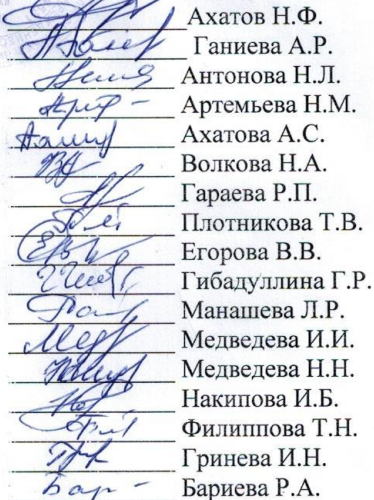 Ахатов Н.Ф.
Ганиева А.Р.
Антонова Н.Л.
Артемьева Н.М.
Ахатова А.С.
Волкова Н.А.
Гараева Р.П.
Плотникова Т.В.
Егорова В.В.
Гибадуллина Г.Р.
Манашева Л.Р.
Медведева И.И.
Медведева Н.Н.
Накипова И.Б.
Филиппова Т.Н.
Гринева И.Н.
Бариева Р.А.